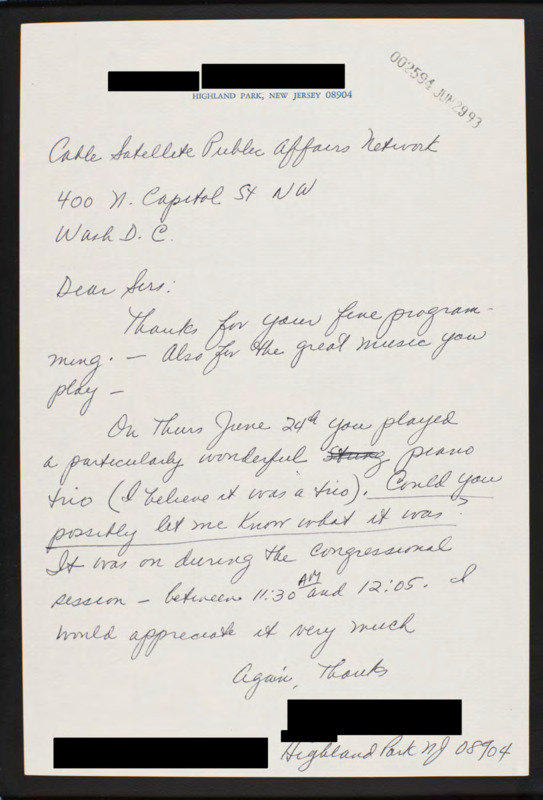 HIGHLAND PARK, NEW JERSEY 08904
002594 JUN 29 93
Cable Satellite Public Affairs Network
400 N. Capitol St NW
Wash D. C.
Dear Sirs:
Thanks for your fine program-
ming. — Also for the great music you
play —
On Thurs June 24th you played
a particularly wonderful piano
trio (I believe it was a trio). Could you
possibly let me know what it was?
It was on during the congressional
session — between 11:30 AM and 12:05. I
would appreciate it very much
Again, Thanks
Highland Park NJ 08904